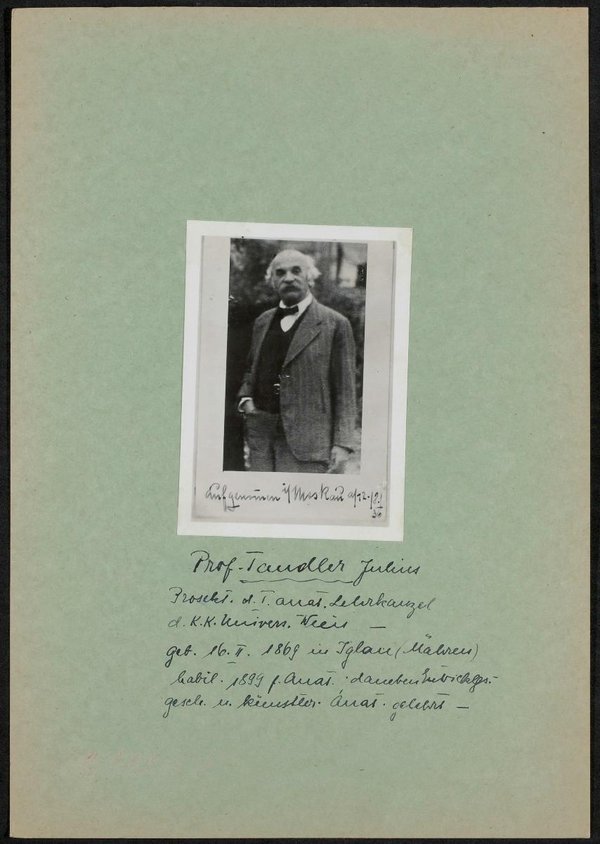 Aufgenommen i/ Moskau a/
36
Prof. Tandler Julius
Prosekt. d. I. anat. Lehrkanzel
d. K.K. Univers. Wien —
geb. 16. II. 1869 in Iglau (Mähren)
habil. 1899 f. Anat. daneben Entwicklgs.-
gesch. u. künstler. Anat. gelehrt —